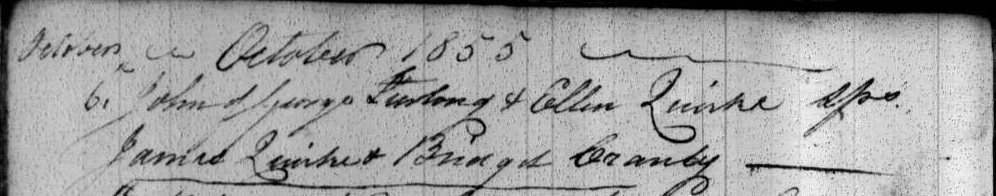 October October 1855
6. John of George Furlong & Ellen Quirke sps.
James Quirke & Bridget Cranby